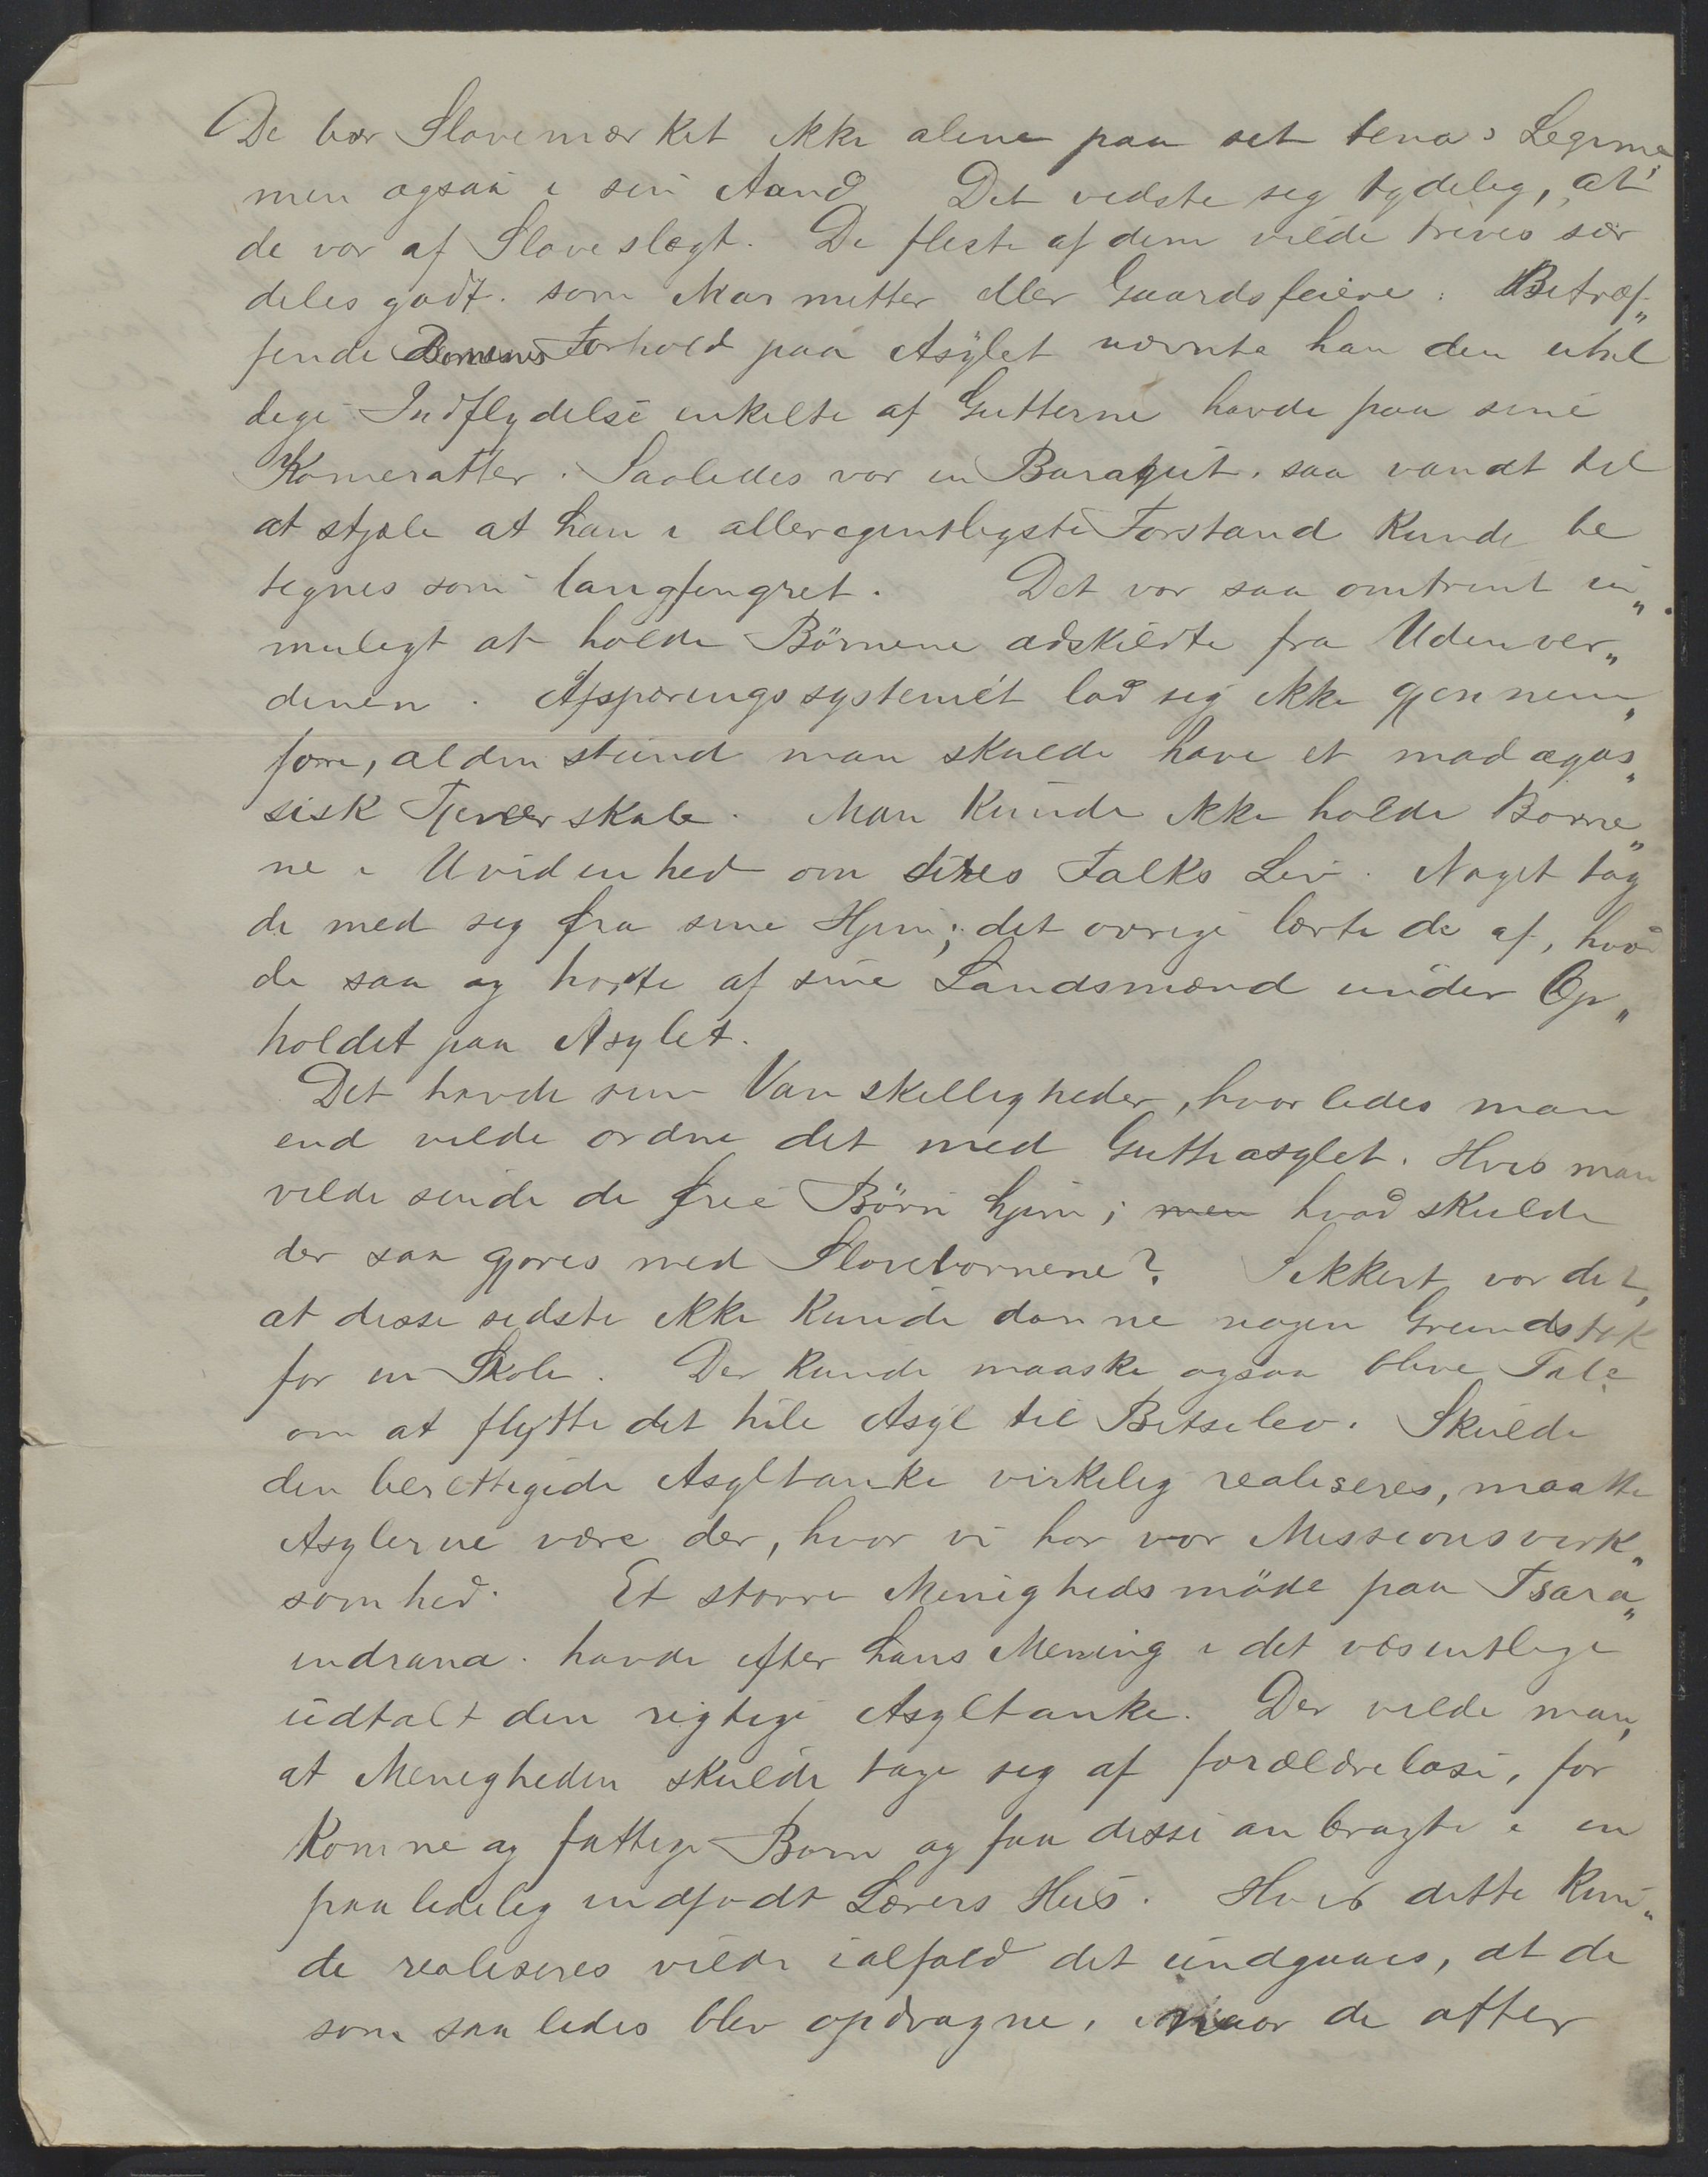 De bær Slavemærket ikke alene paa set Legeme
men ogsaa i sin Aand Det vidste seg tydelig, at
de var af Slaveslægt. De fleste af dem vilde trives sær
deles godt. som Marmitter eller Gaardsfeiere: Betræf„
fende Børnenes Forhold paa Asÿlet nævnte han den uhel
dige Indflydelse enkelte af Gutterne havde paa sine
Kameratter. Saaledes var en Baragut. saa vandt til
at stjæle at han i alleregentligste Forstand kunde be
tegnes som langfingret. Det var saa omtrent u„
muligt at holde Börnene adskildte fra Udenver„
denen. Afspæringssystemet lod sig ikke gjennem„
føre, alden stund man skulde have et madagas„
sisk Tjenerskab. Man kunde ikke holde Børne„
ne i Uvidenhed om sites Folks Liv. Noget tog
de med seg fra sine Hjem; det øvrige lærte de af, hvad
de saa og hørte af sine Landsmænd under Op„
holdet paa Asylet.
Det havde sine Vanskelligheder, hvorledes man
end vilde ordne det med Gutteasylet. Hvis man
vilde sende de frie Börn hjem; men hvad skulde
der saa gjøres med Slavebørnene? Sikkert var det,
at disse sidste ikke kunde danne nogen Grundstok
for en Skole. Der kunde maaske ogsaa blive Tale
om at flytte det hele Asyl til Betsileo. Skulde
den berettigede Asyltanke virkelig realiseres, maatte
Asylerne være der, hvor vi har vor Missionsvirk„
somhed. Et større Menighedsmöde paa Tsara„
indrana. havde efter hans Mening i det væsentlige
udtalt den rigtige Asyltanke. Der vilde man,
at Menigheden skulde tage seg af forældreløse, for
komne og fattige Børn og faa disse anbragte i en
paalidelig indfødt Lærers Hus. Hvis dette kun„
de realiseres vilde ialfald det undgaaes, at de
som saaledes blev opdragne, naar de atter